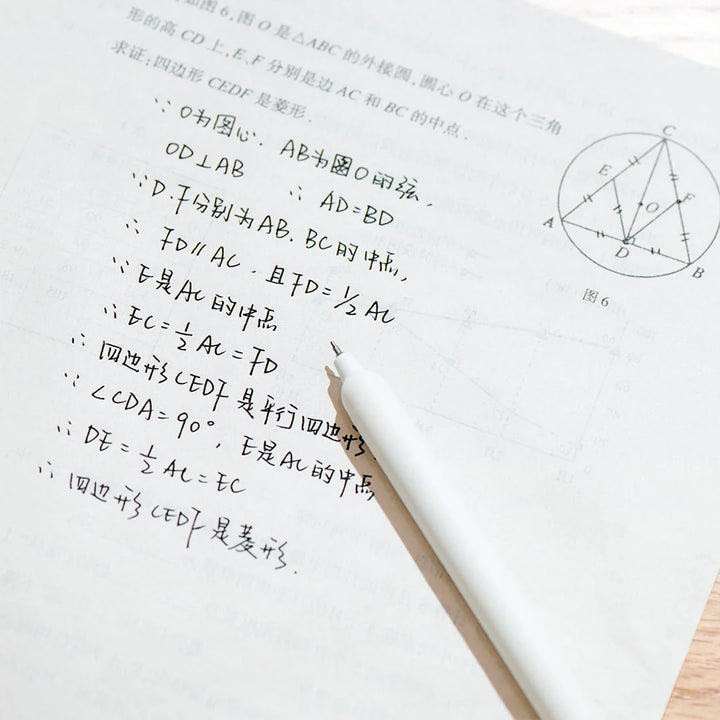 如图6,圆O是△ABC的外接圆,圆心O在这个三角
形的高CD上,E、F分别是边AC和BC的中点.
求证:四边形CEDF是菱形.
∵ O为圆心. AB为圆O的弦,
OD⊥AB ∴ AD=BD
∵D.F分别为AB.BC的中点,
∴ FD∥AC.且FD=1/2AC
∵E是AC的中点
∴EC=1/2AC=FD
∴四边形CEDF是平行四边形.
∵∠CDA=90°, E是AC的中点
∴DE=1/2AC=EC
∴四边形CEDF是菱形.
C
E
F
O
A
D
B
图6